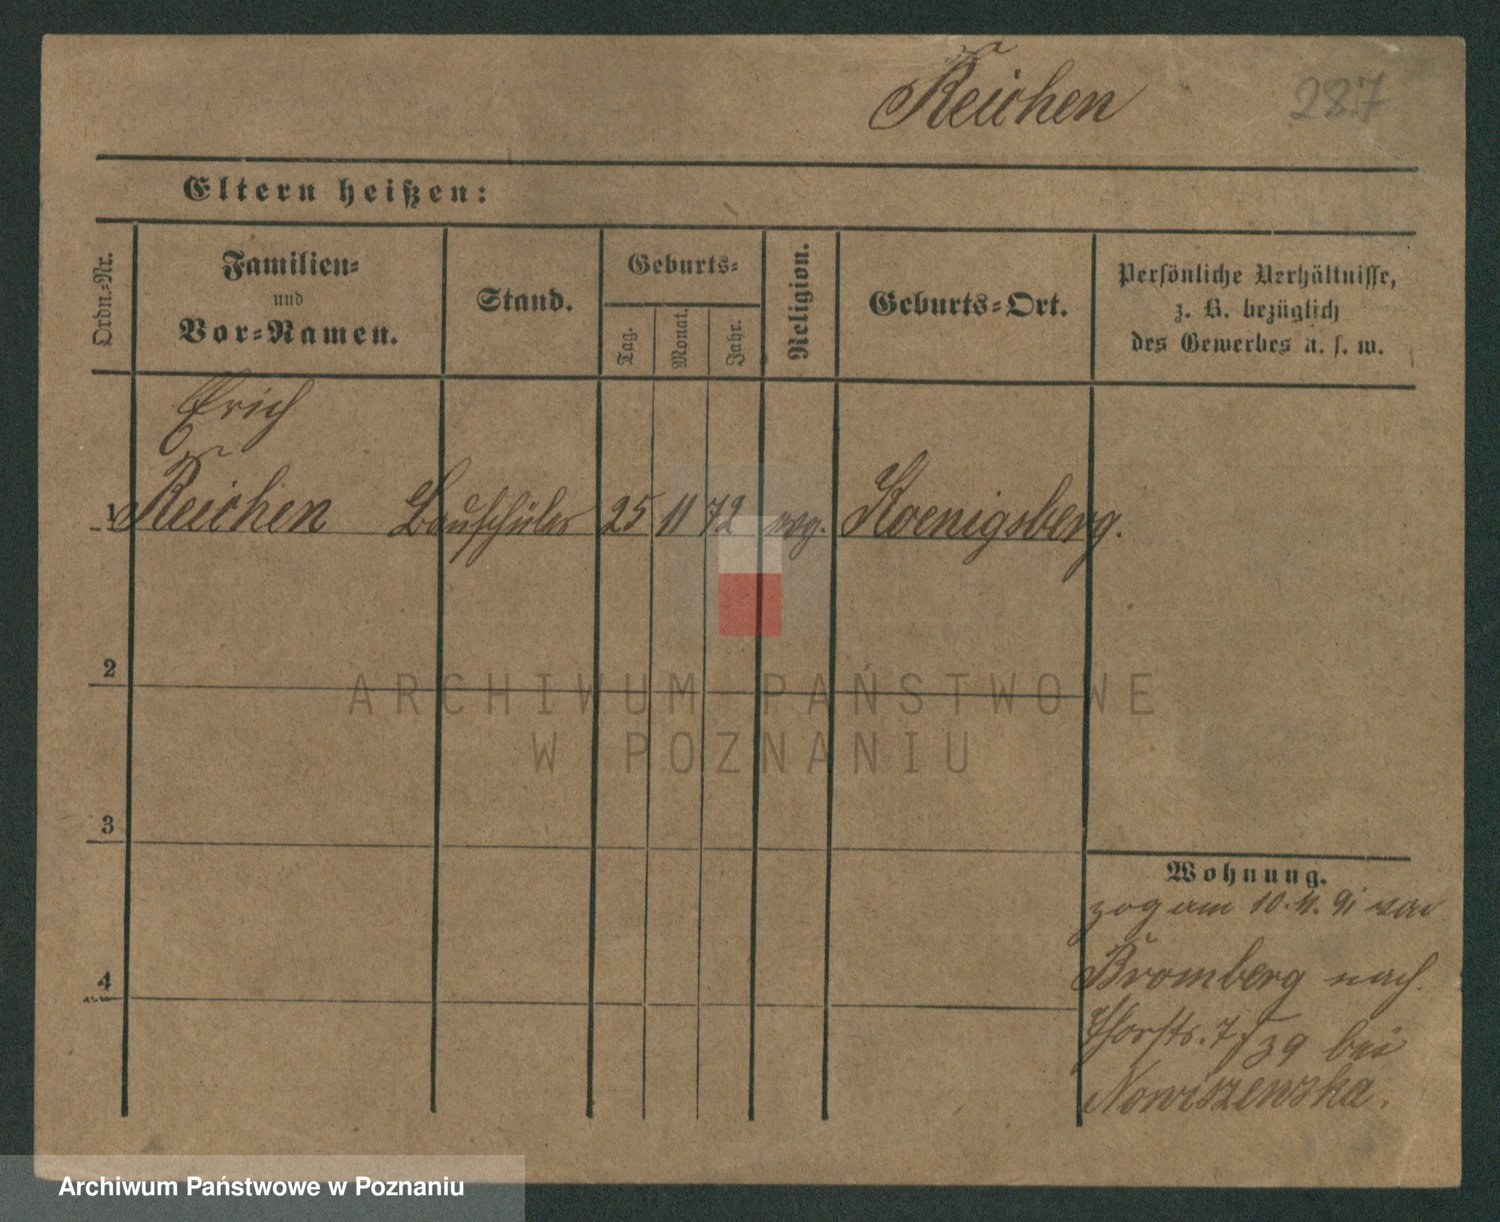 Reichen 287
Eltern heißen:
Ordn.-Nr.
Familien-
und
Vor-Namen.
Stand.
Geburts-
Tag.
Monat.
Jahr.
Religion.
Geburts-Ort.
Persönliche Verhältnisse,
z. B. bezüglich
des Gewerbes u. s. w.
Erich
1 Reichen Bauschüler 25 11 72 evg. Koenigsberg.
2
ARCHIWUM PAŃSTWOWE
W POZNANIU
3
Wohnung.
zog am 10. 11. 91 von
4
Bromberg nach
7 39 bei
Nowiszewska.
Archiwum Państwowe w Poznaniu